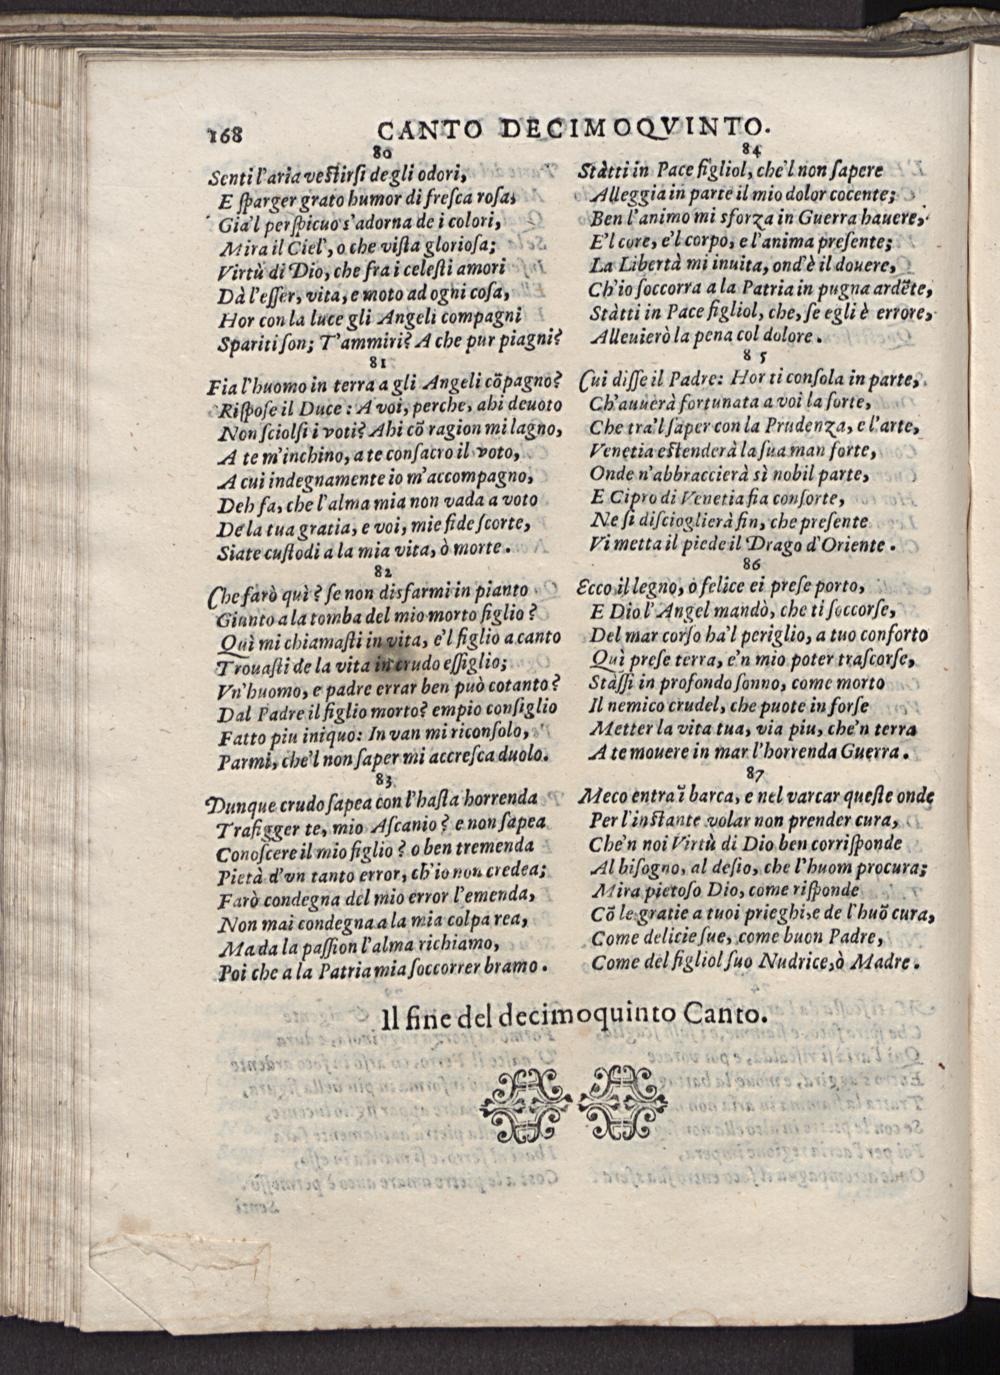 168
CANTO DECIMOQVINTO.
80
Senti l'aria vestirsi de gli odori,
E sparger grato humor di fresca rosa,
Gia'l perspicuo s'adorna de i colori,
Mira il Ciel', o che vista gloriosa;
Virtù di Dio, che fra i celesti amori
Dà l'esser, vita, e moto ad ogni cosa,
Hor con la luce gli Angeli compagni
Spariti son; T'ammiri? A che pur piagni?
81
Fia l'huomo in terra a gli Angeli cõpagno?
Rispose il Duce: A voi, perche, ahi deuoto
Non sciolsi i voti? Ahi cõ ragion mi lagno,
A te m'inchino, a te consacro il voto,
A cui indegnamente io m'accompagno,
Deh fa, che l'alma mia non vada a voto
De la tua gratia, e voi, mie fide scorte,
Siate custodi a la mia vita, ò morte.
82
Che farò quì? se non disfarmi in pianto
Giunto a la tomba del mio morto figlio?
Quì mi chiamasti in vita, e'l figlio a canto
Trouasti de la vita in crudo essiglio;
Vn'huomo, e padre errar ben può cotanto?
Dal Padre il figlio morto? empio consiglio
Fatto piu iniquo: In van mi riconsolo,
Parmi, che'l non saper mi accresca duolo.
83
Dunque crudo sapea con l'hasta horrenda
Trafigger te, mio Ascanio? e non sapea
Conoscere il mio figlio? o ben tremenda
Pietà d'vn tanto error, ch'io non credea;
Farò condegna del mio error l'emenda,
Non mai condegna a la mia colpa rea,
Ma da la passion l'alma richiamo,
Poi che a la Patria mia soccorrer bramo.
84
Stàtti in Pace figliol, che'l non sapere
Alleggia in parte il mio dolor cocente;
Ben l'animo mi sforza in Guerra hauere,
E'l core, e'l corpo, e l'anima presente;
La Libertà mi inuita, ond'è il douere,
Ch'io soccorra a la Patria in pugna ardẽte,
Stàtti in Pace figliol, che, se egli è errore,
Alleuierò la pena col dolore.
85
Cui disse il Padre: Hor ti consola in parte,
Ch'auuerà fortunata a voi la sorte,
Che tra'l saper con la Prudenza, e l'arte,
Venetia estenderà la sua man forte,
Onde n'abbraccierà sì nobil parte,
E Cipro di Venetia fia consorte,
Ne si discioglierà fin, che presente
Vi metta il piede il Drago d'Oriente.
86
Ecco il legno, o felice ei prese porto,
E Dio l'Angel mandò, che ti soccorse,
Del mar corso ha'l periglio, a tuo conforto
Quì prese terra, e'n mio poter trascorse,
Stàssi in profondo sonno, come morto
Il nemico crudel, che puote in forse
Metter la vita tua, via piu, che'n terra
A te mouere in mar l'horrenda Guerra.
87
Meco entra ĩ barca, e nel varcar queste onde
Per l'instante volar non prender cura,
Che'n noi Virtù di Dio ben corrisponde
Al bisogno, al desio, che l'huom procura;
Mira pietoso Dio, come risponde
Cõ le gratie a tuoi prieghi, e de l'huõ cura,
Come delicie sue, come buon Padre,
Come del figliol suo Nudrice, ò Madre.
Il fine del decimoquinto Canto.